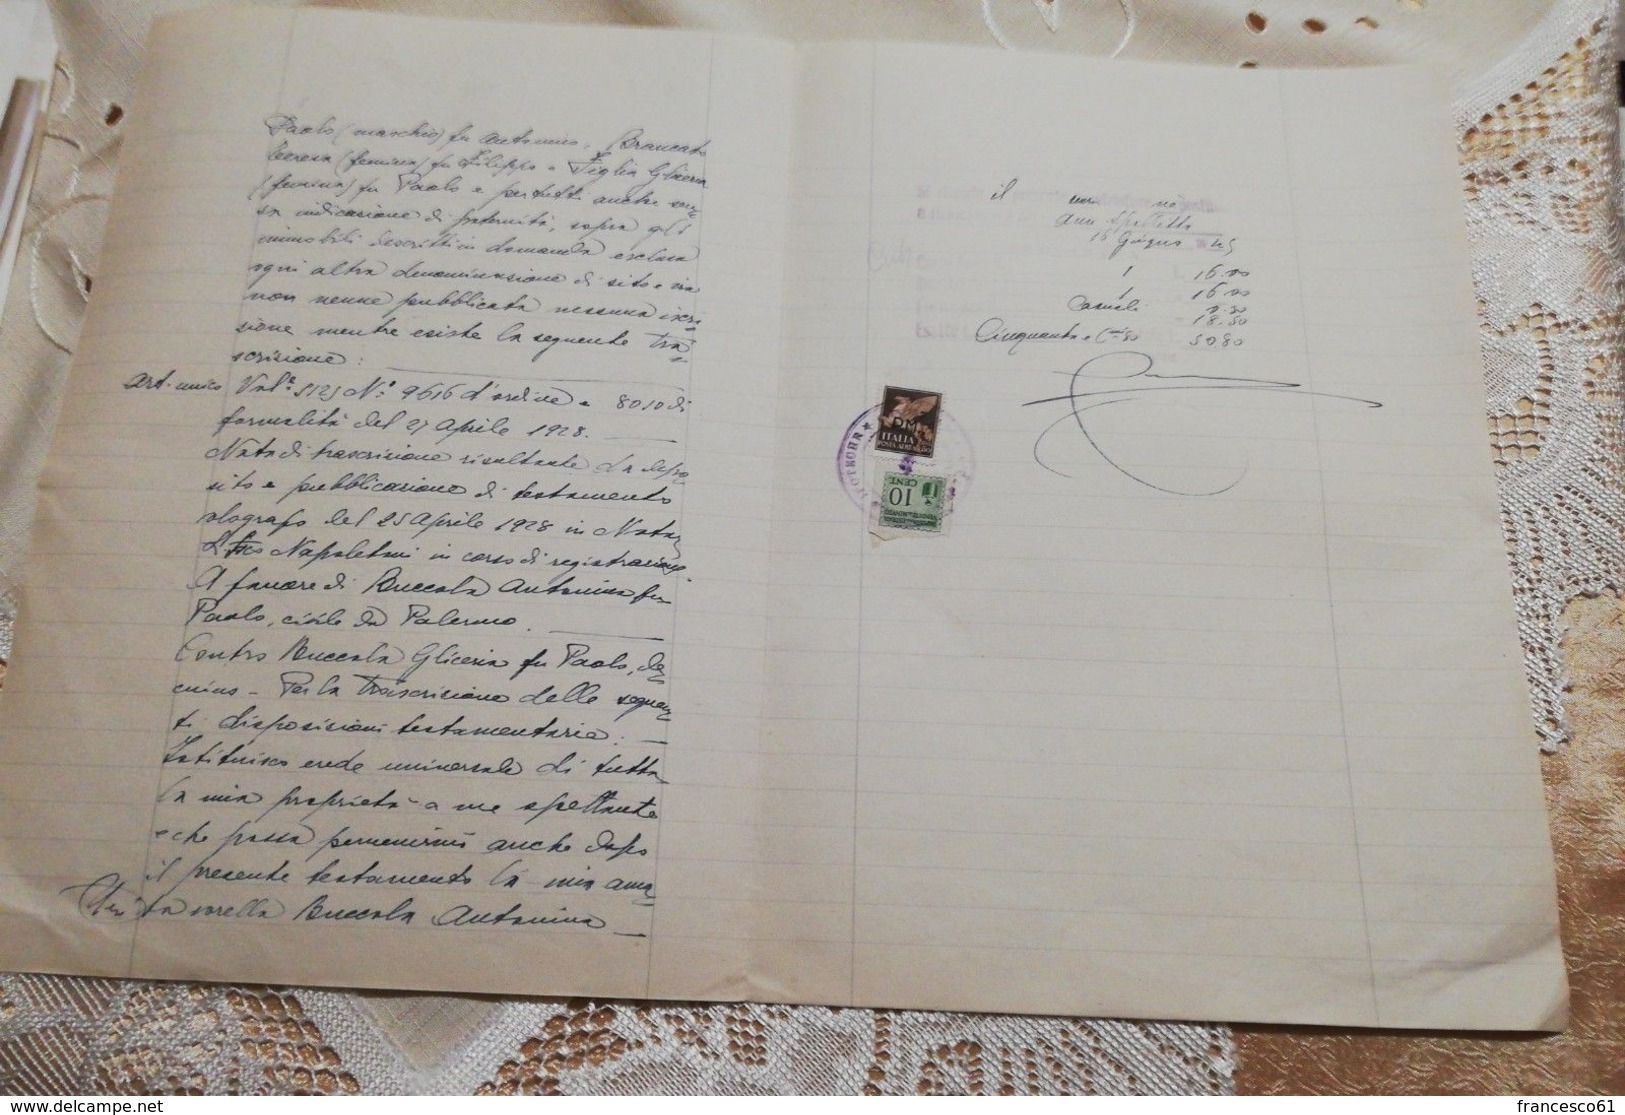 Paolo (maschio) fu Antonino, Brancato
Teresa (femina) fu Filippo e Figlia Gliceria
(femina) fu Paolo e per tutti anche sen
za indicazione di paternità, sopra gli
immobili descritti in domanda esclusa
ogni altra denominazione di sito e via
non venne pubblicata nessuna iscri
zione mentre esiste la seguente tra
scrizione:
Art. unico Vol.e 5125 N.° 9616 d'ordine e 8010 di
formalità del 27 Aprile 1928.
Nota di trascrizione risultante da depo
sito e pubblicazione di testamento
olografo del 25 Aprile 1928 in Notar
Napoletani in corso di registrazione
A favore di Buccola Antonina fu
Paolo, civile da Palermo.
Contro Buccola Gliceria fu Paolo, de
cuius - Per la trascrizione delle seguen
ti disposizioni testamentarie:
Istituisco erede universale di tutta
la mia proprietà a me spettante
e che possa pervenirmi anche dopo
il presente testamento la mia ama
ta sorella Buccola Antonina
il
16 Giugno 45
1 16.00
1 16.00
Casuali 0.30
18.50
Cinquanta e C 80 50.80
P.M.
ITALIA
POSTA AEREA
10
CENT
delcampe.net
francesco61